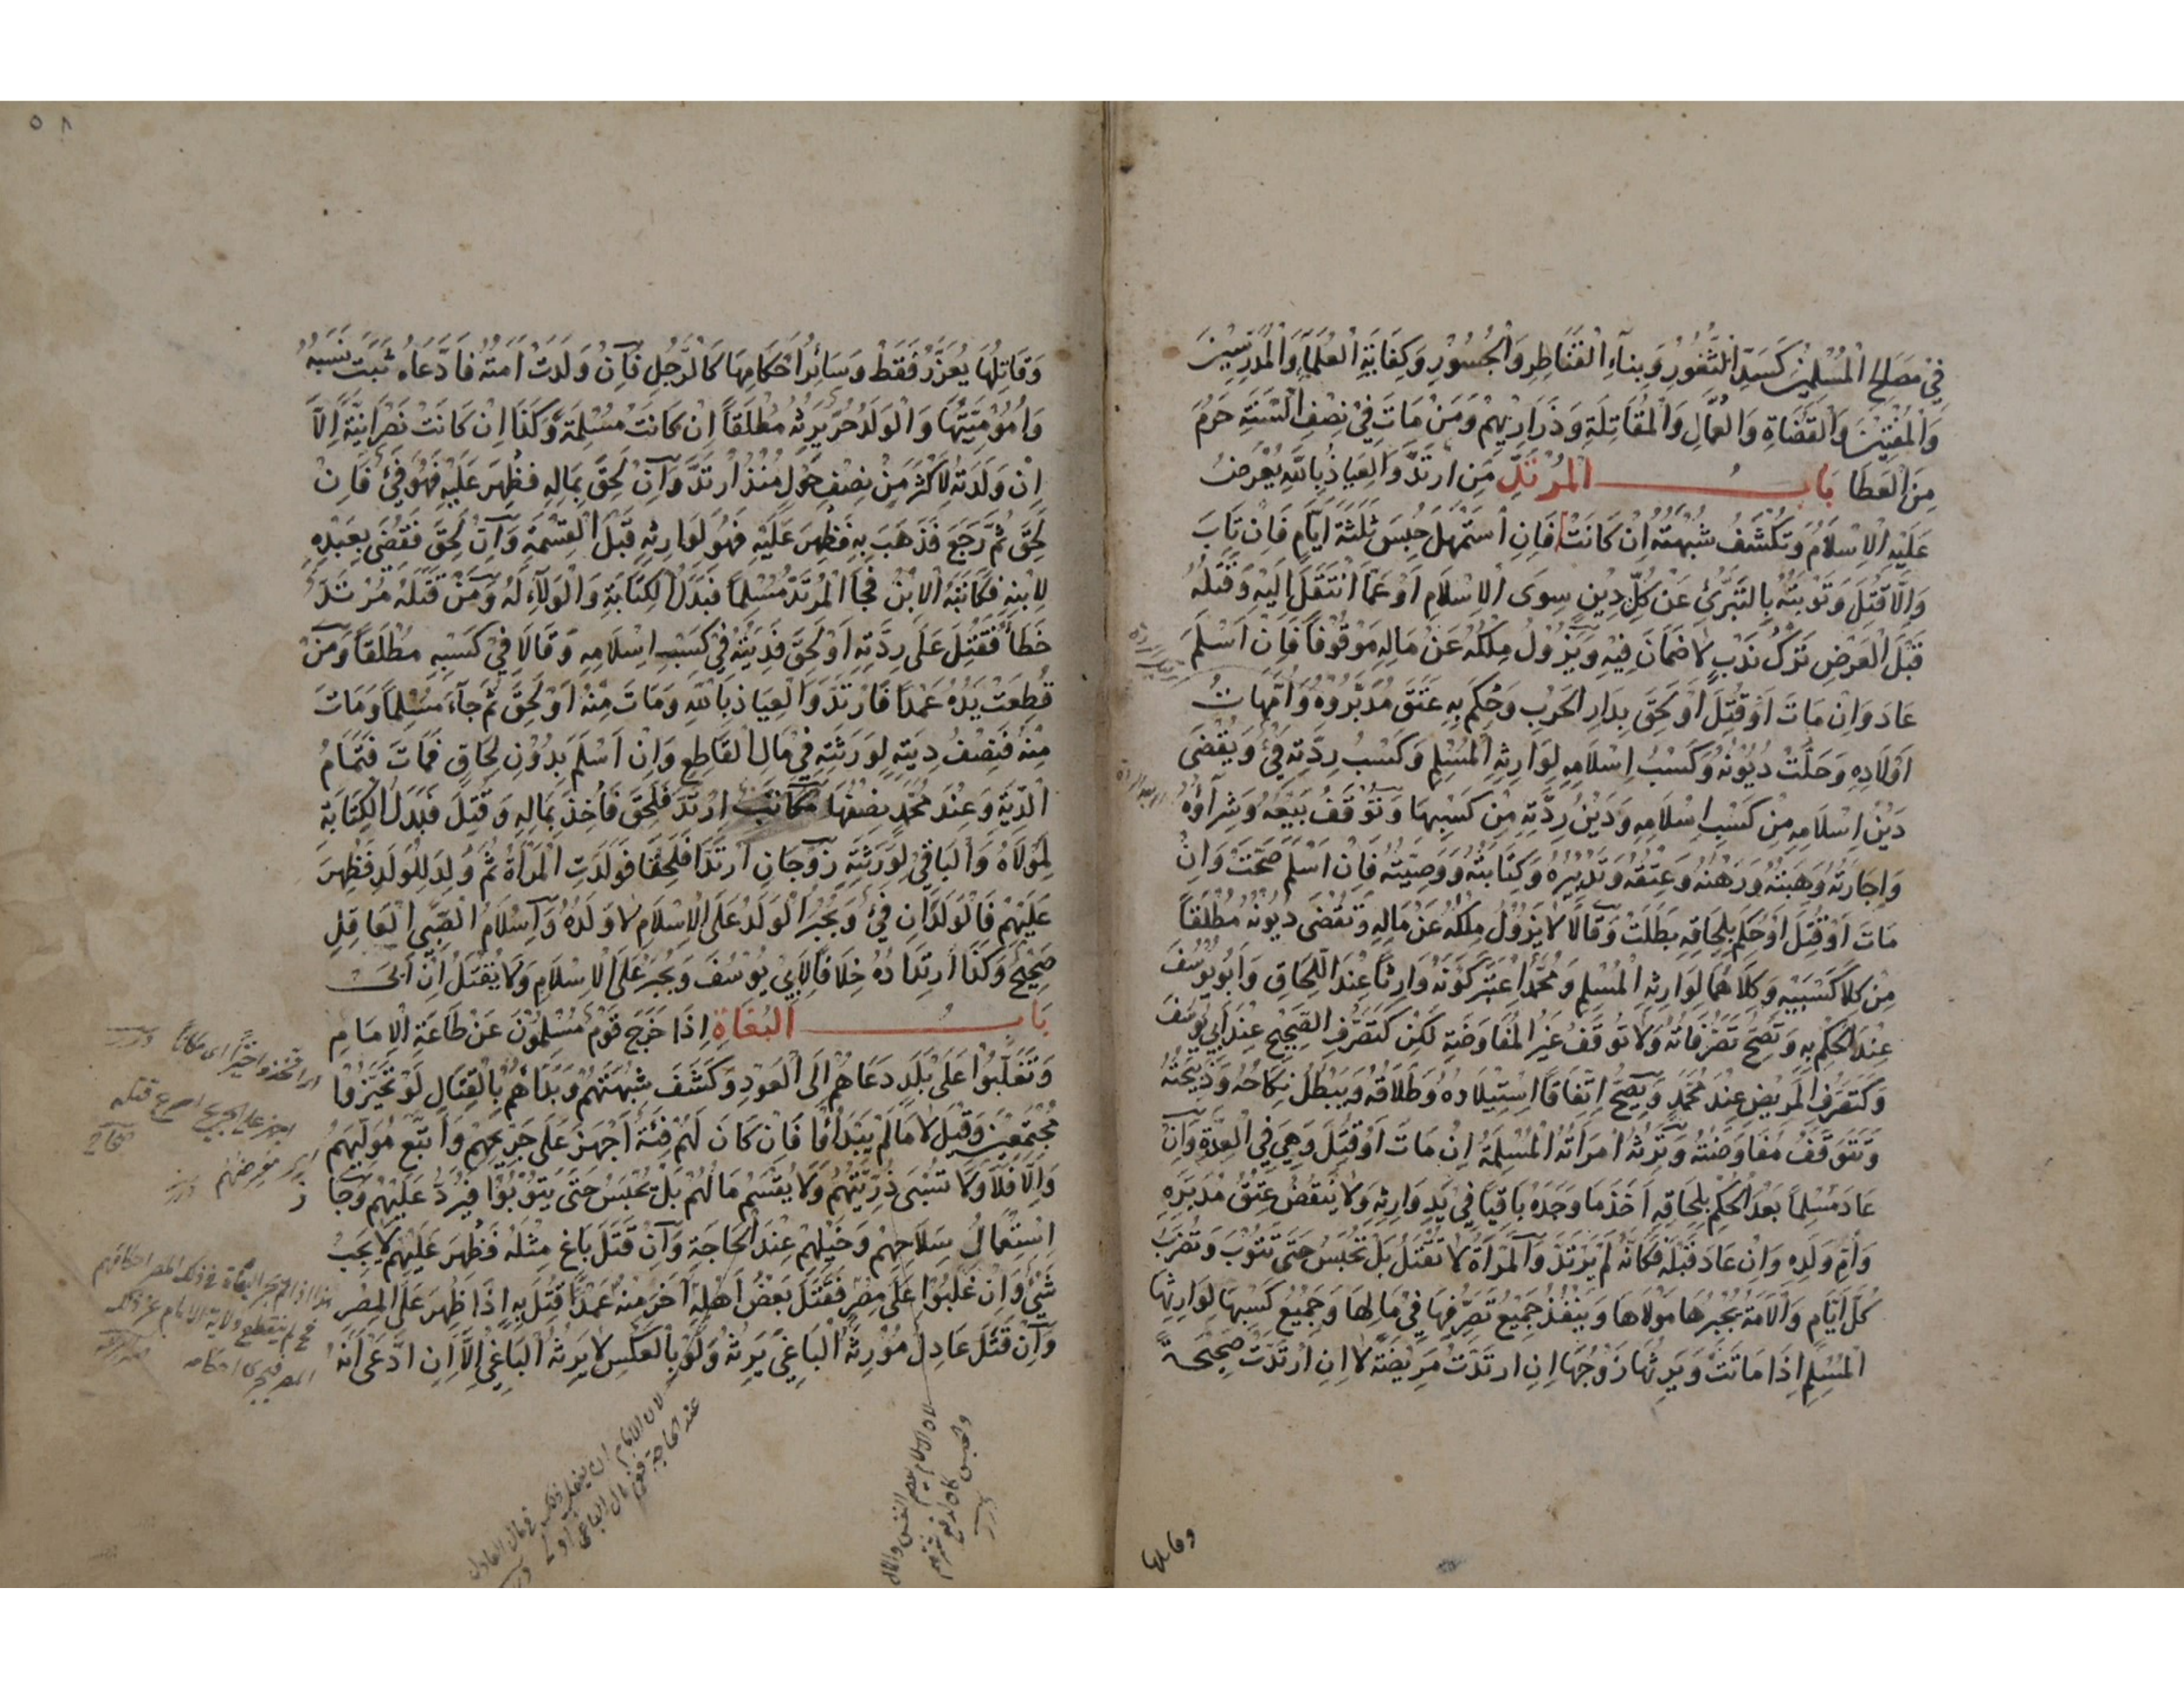 فِي مَصَالِحِ الْمُسْلِمِينَ كَسَدِّ الثُّغُورِ وَبِنَاءِ الْقَنَاطِرِ وَالْجُسُورِ وَكِفَايَةِ الْعُلَمَاءِ وَالْمُدَرِّسِينَ
وَالْمُفْتِينَ وَالْقُضَاةِ وَالْعُمَّالِ وَالْمُقَاتِلَةِ وَذَرَارِيهِمْ وَمَنْ مَاتَ فِي نِصْفِ السَّنَةِ حَرُمَ
مِنَ الْعَطَا بَابُ الْمُرْتَدِّ مَنِ ارْتَدَّ وَالْعِيَاذُ بِاللّهِ يُعْرَضُ
عَلَيْهِ الْإِسْلَامُ وَتُكْشَفُ شُبْهَتُهُ إِنْ كَانَتْ فَإِنِ اسْتَمْهَلَ حُبِسَ ثَلٰثَةَ أَيَّامٍ فَإِنْ تَابَ
وَإِلَّا قُتِلَ وَتَوْبَتُهُ بِالتَّبَرِّئِ عَنْ كُلِّ دِينٍ سِوَى الْإِسْلَامِ أَوْ عَمَّا انْتَقَلَ إِلَيْهِ وَقَتْلُهُ
قَبْلَ الْعَرْضِ تَرْكُ نَدْبٍ لَا ضَمَانَ فِيهِ وَيَزُولُ مِلْكُهُ عَنْ مَالِهِ مَوْقُوفًا فَإِنْ أَسْلَمَ
عَادَ وَإِنْ مَاتَ أَوْ قُتِلَ أَوْ لَحِقَ بِدَارِ الْحَرْبِ وَحُكِمَ بِهِ عَتَقَ مُدَبَّرُوهُ وَأُمَّهَاتُ
أَوْلَادِهِ وَحَلَّتْ دُيُونُهُ وَكَسْبُ إِسْلَامِهِ لِوَارِثِهِ الْمُسْلِمِ وَكَسْبُ رِدَّتِهِ فَيْءٌ وَيُقْضَى
دَيْنُ إِسْلَامِهِ مِنْ كَسْبِ إِسْلَامِهِ وَدَيْنُ رِدَّتِهِ مِنْ كَسْبِهَا وَتُوقَفُ بَيْعُهُ وَشِرَاؤُهُ
وَإِجَارَتُهُ وَهِبَتُهُ وَرَهْنُهُ وَعِتْقُهُ وَتَدْبِيرُهُ وَكِتَابَتُهُ وَوَصِيَّتُهُ فَإِنْ أَسْلَمَ صَحَّتْ وَإِنْ
مَاتَ أَوْ قُتِلَ أَوْ حُكِمَ بِلِحَاقِهِ بَطَلَتْ وَقَالَا لَا يَزُولُ مِلْكُهُ عَنْ مَالِهِ وَتُقْضَى دُيُونُهُ مُطْلَقًا
مِنْ كِلَا كَسْبَيْهِ وَكِلَاهُمَا لِوَارِثِهِ الْمُسْلِمِ وَمُحَمَّدٌ اعْتَبَرَ كَوْنَهُ وَارِثًا عِنْدَ اللِّحَاقِ وَأَبُو يُوسُفَ
عِنْدَ الْحُكْمِ بِهِ وَتَصِحُّ تَصَرُّفَاتُهُ وَلَا تُوقَفُ غَيْرُ الْمُفَاوَضَةِ لَكِنْ كَتَصَرُّفِ الصَّحِيحِ عِنْدَ أَبِي يُوسُفَ
وَكَتَصَرُّفِ الْمَرِيضِ عِنْدَ مُحَمَّدٍ وَيَصِحُّ اتِّفَاقًا اسْتِيلَادُهُ وَطَلَاقُهُ وَيَبْطُلُ نِكَاحُهُ وَذَبِيحَتُهُ
وَتَتَوَقَّفُ مُفَاوَضَتُهُ وَتَرِثُهُ امْرَأَتُهُ الْمُسْلِمَةُ إِنْ مَاتَ أَوْ قُتِلَ وَهِيَ فِي الْعِدَّةِ وَإِنْ
عَادَ مُسْلِمًا بَعْدَ الْحُكْمِ بِلِحَاقِهِ أَخَذَ مَا وَجَدَهُ بَاقِيًا فِي يَدِ وَارِثِهِ وَلَا يُنْقَضُ عِتْقُ مُدَبَّرِهِ
وَأُمِّ وَلَدِهِ وَإِنْ عَادَ قَبْلَهُ فَكَأَنَّهُ لَمْ يَرْتَدَّ وَالْمَرْأَةُ لَا تُقْتَلُ بَلْ تُحْبَسُ حَتَّى تَتُوبَ وَتُضْرَبُ
كُلَّ أَيَّامٍ وَالْأَمَةُ يُجْبِرُهَا مَوْلَاهَا وَيَنْفُذُ جَمِيعُ تَصَرُّفِهَا فِي مَالِهَا وَجَمِيعُ كَسْبِهَا لِوَارِثِهَا
الْمُسْلِمِ إِذَا مَاتَتْ وَيَرِثُهَا زَوْجُهَا إِنِ ارْتَدَّتْ مَرِيضَةً لَا إِنِ ارْتَدَّتْ صَحِيحَةً
وقاتلها
٥٨
وَقَاتِلُهَا يُعَزَّرُ فَقَطْ وَسَائِرُ أَحْكَامِهَا كَالرَّجُلِ فَإِنْ وَلَدَتْ أَمَتُهُ فَادَّعَاهُ ثَبَتَ نَسَبُهُ
وَأُمُومِيَّتُهَا وَالْوَلَدُ حُرٌّ يَرِثُهُ مُطْلَقًا إِنْ كَانَتْ مُسْلِمَةً وَكَذَا إِنْ كَانَتْ نَصْرَانِيَّةً إِلَّا
إِنْ وَلَدَتْهُ لِأَكْثَرَ مِنْ نِصْفِ حَوْلٍ مُنْذُ ارْتَدَّ وَإِنْ لَحِقَ بِمَالِهِ فَظُهِرَ عَلَيْهِ فَهُوَ فَيْءٌ فَإِنْ
لَحِقَ ثُمَّ رَجَعَ فَذَهَبَ بِهِ فَظُهِرَ عَلَيْهِ فَهُوَ لِوَارِثِهِ قَبْلَ الْقِسْمَةِ وَإِنْ لَحِقَ فَقُضِيَ بِعَبْدِهِ
لِابْنِهِ فَكَاتَبَهُ الْابْنُ فَجَاءَ الْمُرْتَدُّ مُسْلِمًا فَبَدَلُ الْكِتَابَةِ وَالْوَلَاءِ لَهُ وَمَنْ قَتَلَهُ مُرْتَدٌّ
خَطَأً فَقُتِلَ عَلَى رِدَّتِهِ أَوْ لَحِقَ فَدِيَتُهُ فِي كَسْبِ إِسْلَامِهِ وَقَالَا فِي كَسْبِهِ مُطْلَقًا وَمَنْ
قُطِعَتْ يَدُهُ عَمْدًا فَارْتَدَّ وَالْعِيَاذُ بِاللّهِ وَمَاتَ مِنْهُ أَوْ لَحِقَ ثُمَّ جَاءَ مُسْلِمًا وَمَاتَ
مِنْهُ فَنِصْفُ دِيَتِهِ لِوَرَثَتِهِ فِي مَالِ الْقَاطِعِ وَإِنْ أَسْلَمَ بِدُونِ لِحَاقٍ فَمَاتَ فَتَمَامُ
الدِّيَةِ وَعِنْدَ مُحَمَّدٍ نِصْفُهَا مُكَاتَبٌ ارْتَدَّ فَلَحِقَ فَأُخِذَ بِمَالِهِ وَقُتِلَ فَبَدَلُ الْكِتَابَةِ
لِمَوْلَاهُ وَالْبَاقِي لِوَرَثَتِهِ زَوْجَانِ ارْتَدَّا فَلَحِقَا فَوَلَدَتِ الْمَرْأَةُ ثُمَّ وُلِدَ لِلْوَلَدِ فَظُهِرَ
عَلَيْهِمْ فَالْوَلَدَانِ فَيْءٌ وَيُجْبَرُ الْوَلَدُ عَلَى الْإِسْلَامِ لَا وَلَدُهُ وَإِسْلَامُ الصَّبِيِّ الْعَاقِلِ
صَحِيحٌ وَكَذَا ارْتِدَادُهُ خِلَافًا لِأَبِي يُوسُفَ وَيُجْبَرُ عَلَى الْإِسْلَامِ وَلَا يُقْتَلُ إِنْ أَبَى
بَابُ الْبُغَاةِ إِذَا خَرَجَ قَوْمٌ مُسْلِمُونَ عَنْ طَاعَةِ الْإِمَامِ
وَتَغَلَّبُوا عَلَى بَلَدٍ دَعَاهُمْ إِلَى الْعَوْدِ وَكَشَفَ شُبْهَتَهُمْ وَبَدَأَهُمْ بِالْقِتَالِ لَوْ تَحَيَّزُوا
مُجْتَمِعِينَ وَقِيلَ لَا مَا لَمْ يَبْدَأُوا فَإِنْ كَانَ لَهُمْ فِئَةٌ أَجْهَزَ عَلَى جَرِيحِهِمْ وَاتَّبَعَ مُوَلِّيَهُمْ
وَإِلَّا فَلَا وَلَا تُسْبَى ذُرِّيَّتُهُمْ وَلَا يُقْسَمُ مَالُهُمْ بَلْ يُحْبَسُ حَتَّى يَتُوبُوا فَيُرَدُّ عَلَيْهِمْ وَجَازَ
اسْتِعْمَالُ سِلَاحِهِمْ وَخَيْلِهِمْ عِنْدَ الْحَاجَةِ وَإِنْ قَتَلَ بَاغٍ مِثْلَهُ فَظُهِرَ عَلَيْهِمْ لَا يَجِبُ
شَيْءٌ وَإِنْ غَلَبُوا عَلَى مِصْرٍ فَقَتَلَ بَعْضُ أَهْلِهِ آخَرَ مِنْهُ عَمْدًا قُتِلَ بِهِ إِذَا ظُهِرَ عَلَى الْمِصْرِ
وَإِنْ قَتَلَ عَادِلٌ مُوَرِّثَهُ الْبَاغِيَ يَرِثُهُ وَلَوْ بِالْعَكْسِ لَا يَرِثُهُ الْبَاغِي إِلَّا إِنِ ادَّعَى أَنَّهُ